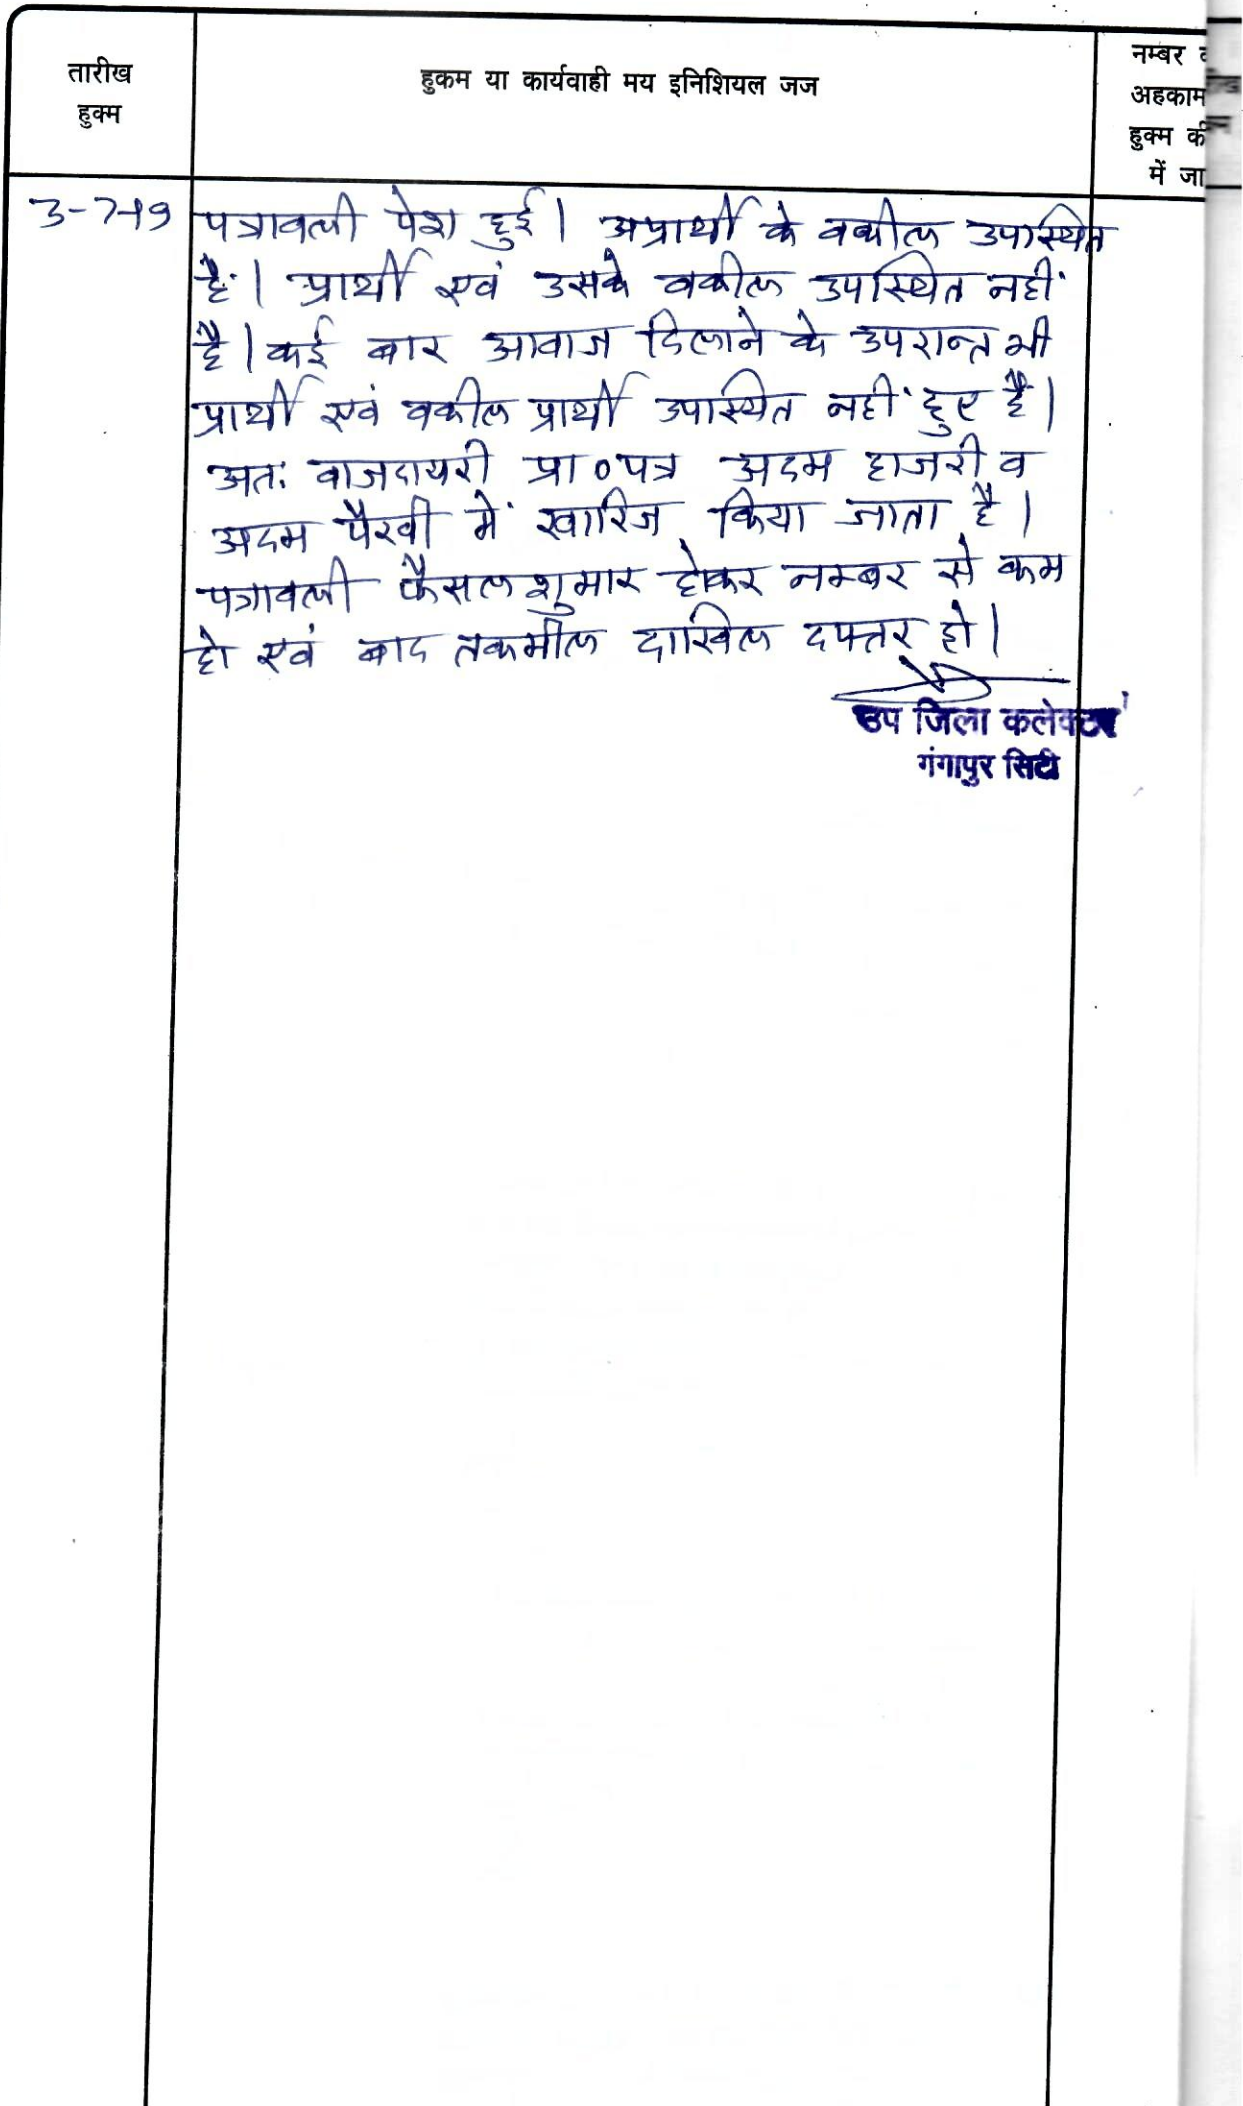 तारीख
हुक्म
हुकम या कार्यवाही मय इनिशियल जज
नम्बर
अहकाम
हुक्म की
में जा
3-7-19
पत्रावली पेश हुई। अप्रार्थी के वकील उपास्थित
है। प्रार्थी एवं उसके वकील उपस्थित नहीं
है। कई बार आवाज दिलाने के उपरान्त भी
प्रार्थी एवं वकील प्रार्थी उपास्थित नहीं हुए है।
अतः बाजदायरी प्रा०पत्र अदम हाजरी व
अदम पैरवी में खारिज किया जाता है।
पत्रावली फैसल शुमार होकर नम्बर से कम
हो एवं बाद तकमील दाखिल दफ्तर हो।
उप जिला कलेक्टर
गंगापुर सिटी